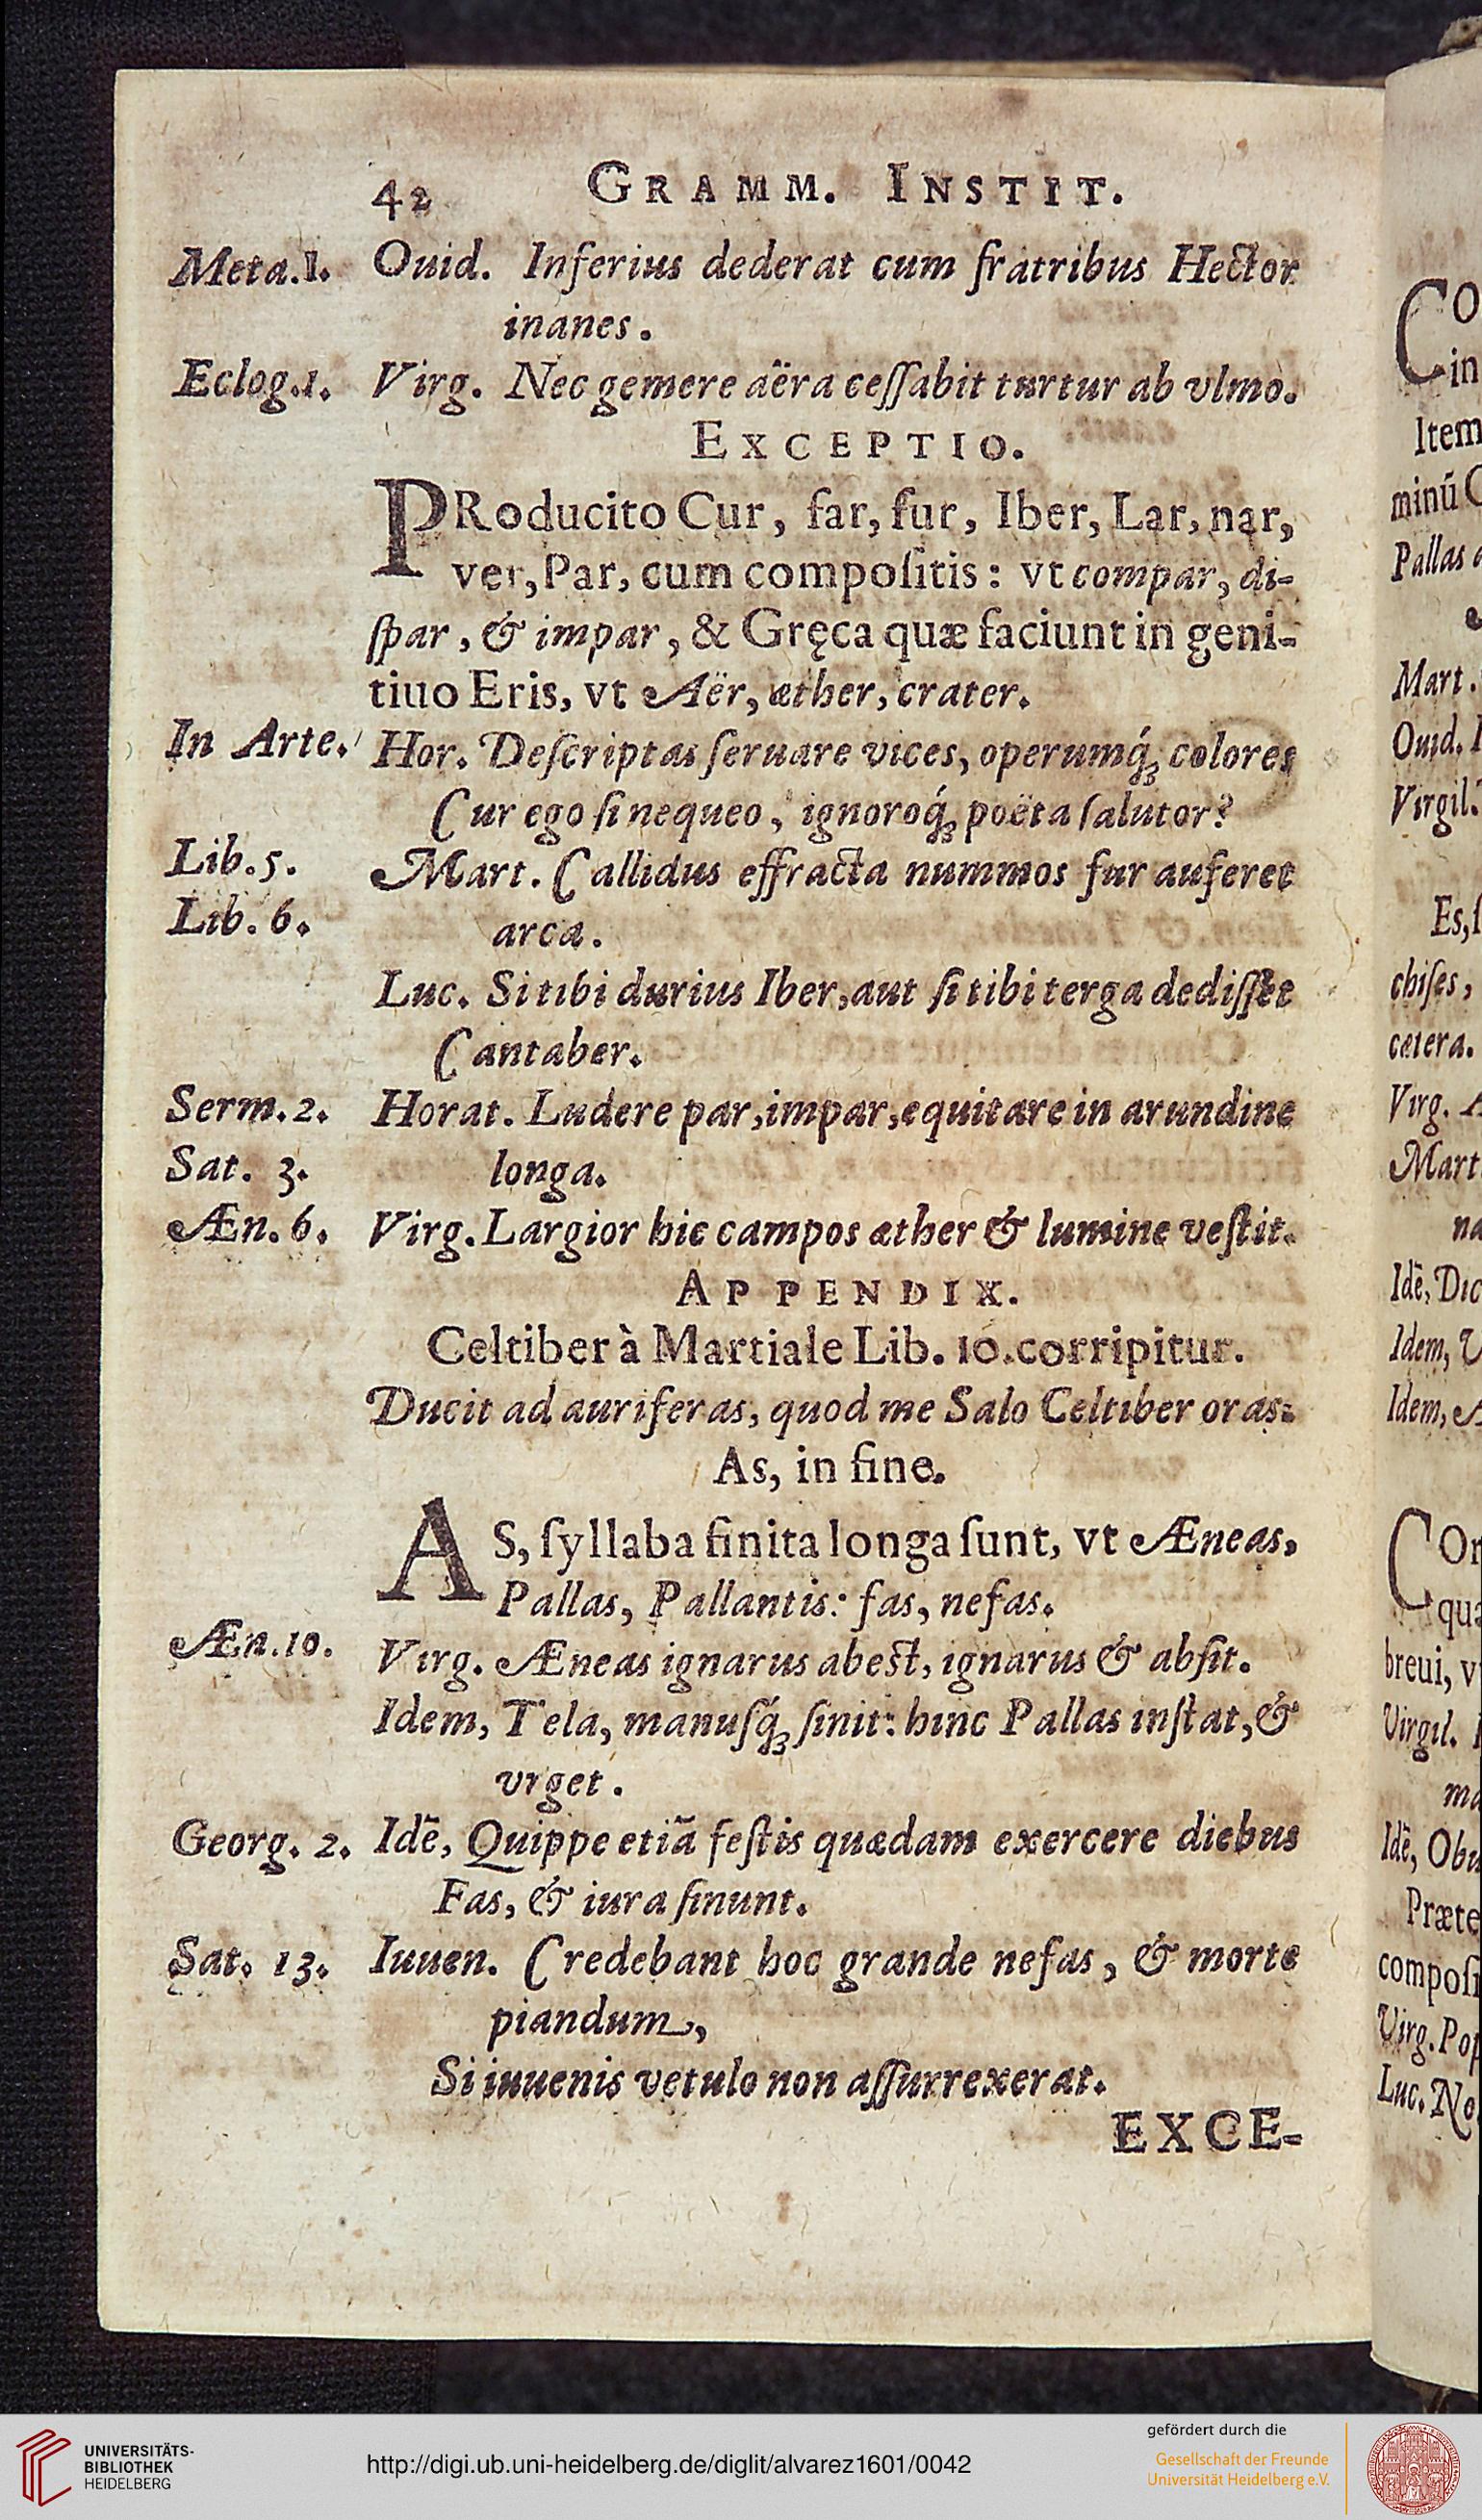 42 GRAMM. INSTIT.
Meta.1. Ouid. Inferius dederat cum fratribus Hector
inanes.
Eclog.1. Virg. Nec gemere aëra ceſſabit turtur ab vlmo.
EXCEPTIO.
PRoducito Cur, far, fur, Iber, Lar, nar,
ver, Par, cum compoſitis: vt compar, di-
ſpar, & impar, & Gręca quæ faciunt in geni-
tiuo Eris, vt Aër, æther, crater.
In Arte. Hor. Deſcriptas ſeruare vices, operumq́ꝫ colores
Cur ego ſi nequeo, ignoroq́ꝫ poëta ſalutor?
Lib.5. Mart. Callidus effracta nummos fur auferet
Lib. 6. arca.
Luc. Si tibi durius Iber, aut ſi tibi terga dediſſet
Cantaber.
Serm.2. Horat. Ludere par, impar, equitare in arundine
Sat. 3. longa.
Æn.6. Virg. Largior hic campos æther & lumine veſtit.
APPENDIX.
Celtiber à Martiale Lib. 10. corripitur.
Ducit ad auriferas, quod me Salo Celtiber oras.
As, in fine.
AS, ſyllaba finita longa ſunt, vt Æneas,
Pallas, Pallantis: fas, nefas.
Æn.10. Virg. Æneas ignarus abest, ignarus & abſit.
Idem, Tela, manuſq́ꝫ ſinit: hinc Pallas inſtat, &
vrget.
Georg. 2. Idē, Quippe etiā feſtis quædam exercere diebus
Fas, & iura ſinunt.
Sat. 13. Iuuen. Credebant hoc grande nefas, & morte
piandum,
Si iuuenis vetulo non aſſurrexerat.
EXCE-
CO
in
Item
minú C
Pallas
Mart.
Ouid. I
Virgil.
Es, ſ
chiſes,
cætera.
Virg. A
Mart
na
Idē, Dic
Idem, V
Idem, A
Cor
quæ
breui, v
Virgil.
ma
Idē, Obu
Præte
compoſi
Virg. Pop
Luc. No
UNIVERSITÄTS-
BIBLIOTHEK
HEIDELBERG
http://digi.ub.uni-heidelberg.de/diglit/alvarez1601/0042
gefördert durch die
Gesellschaft der Freunde
Universität Heidelberg e.V.